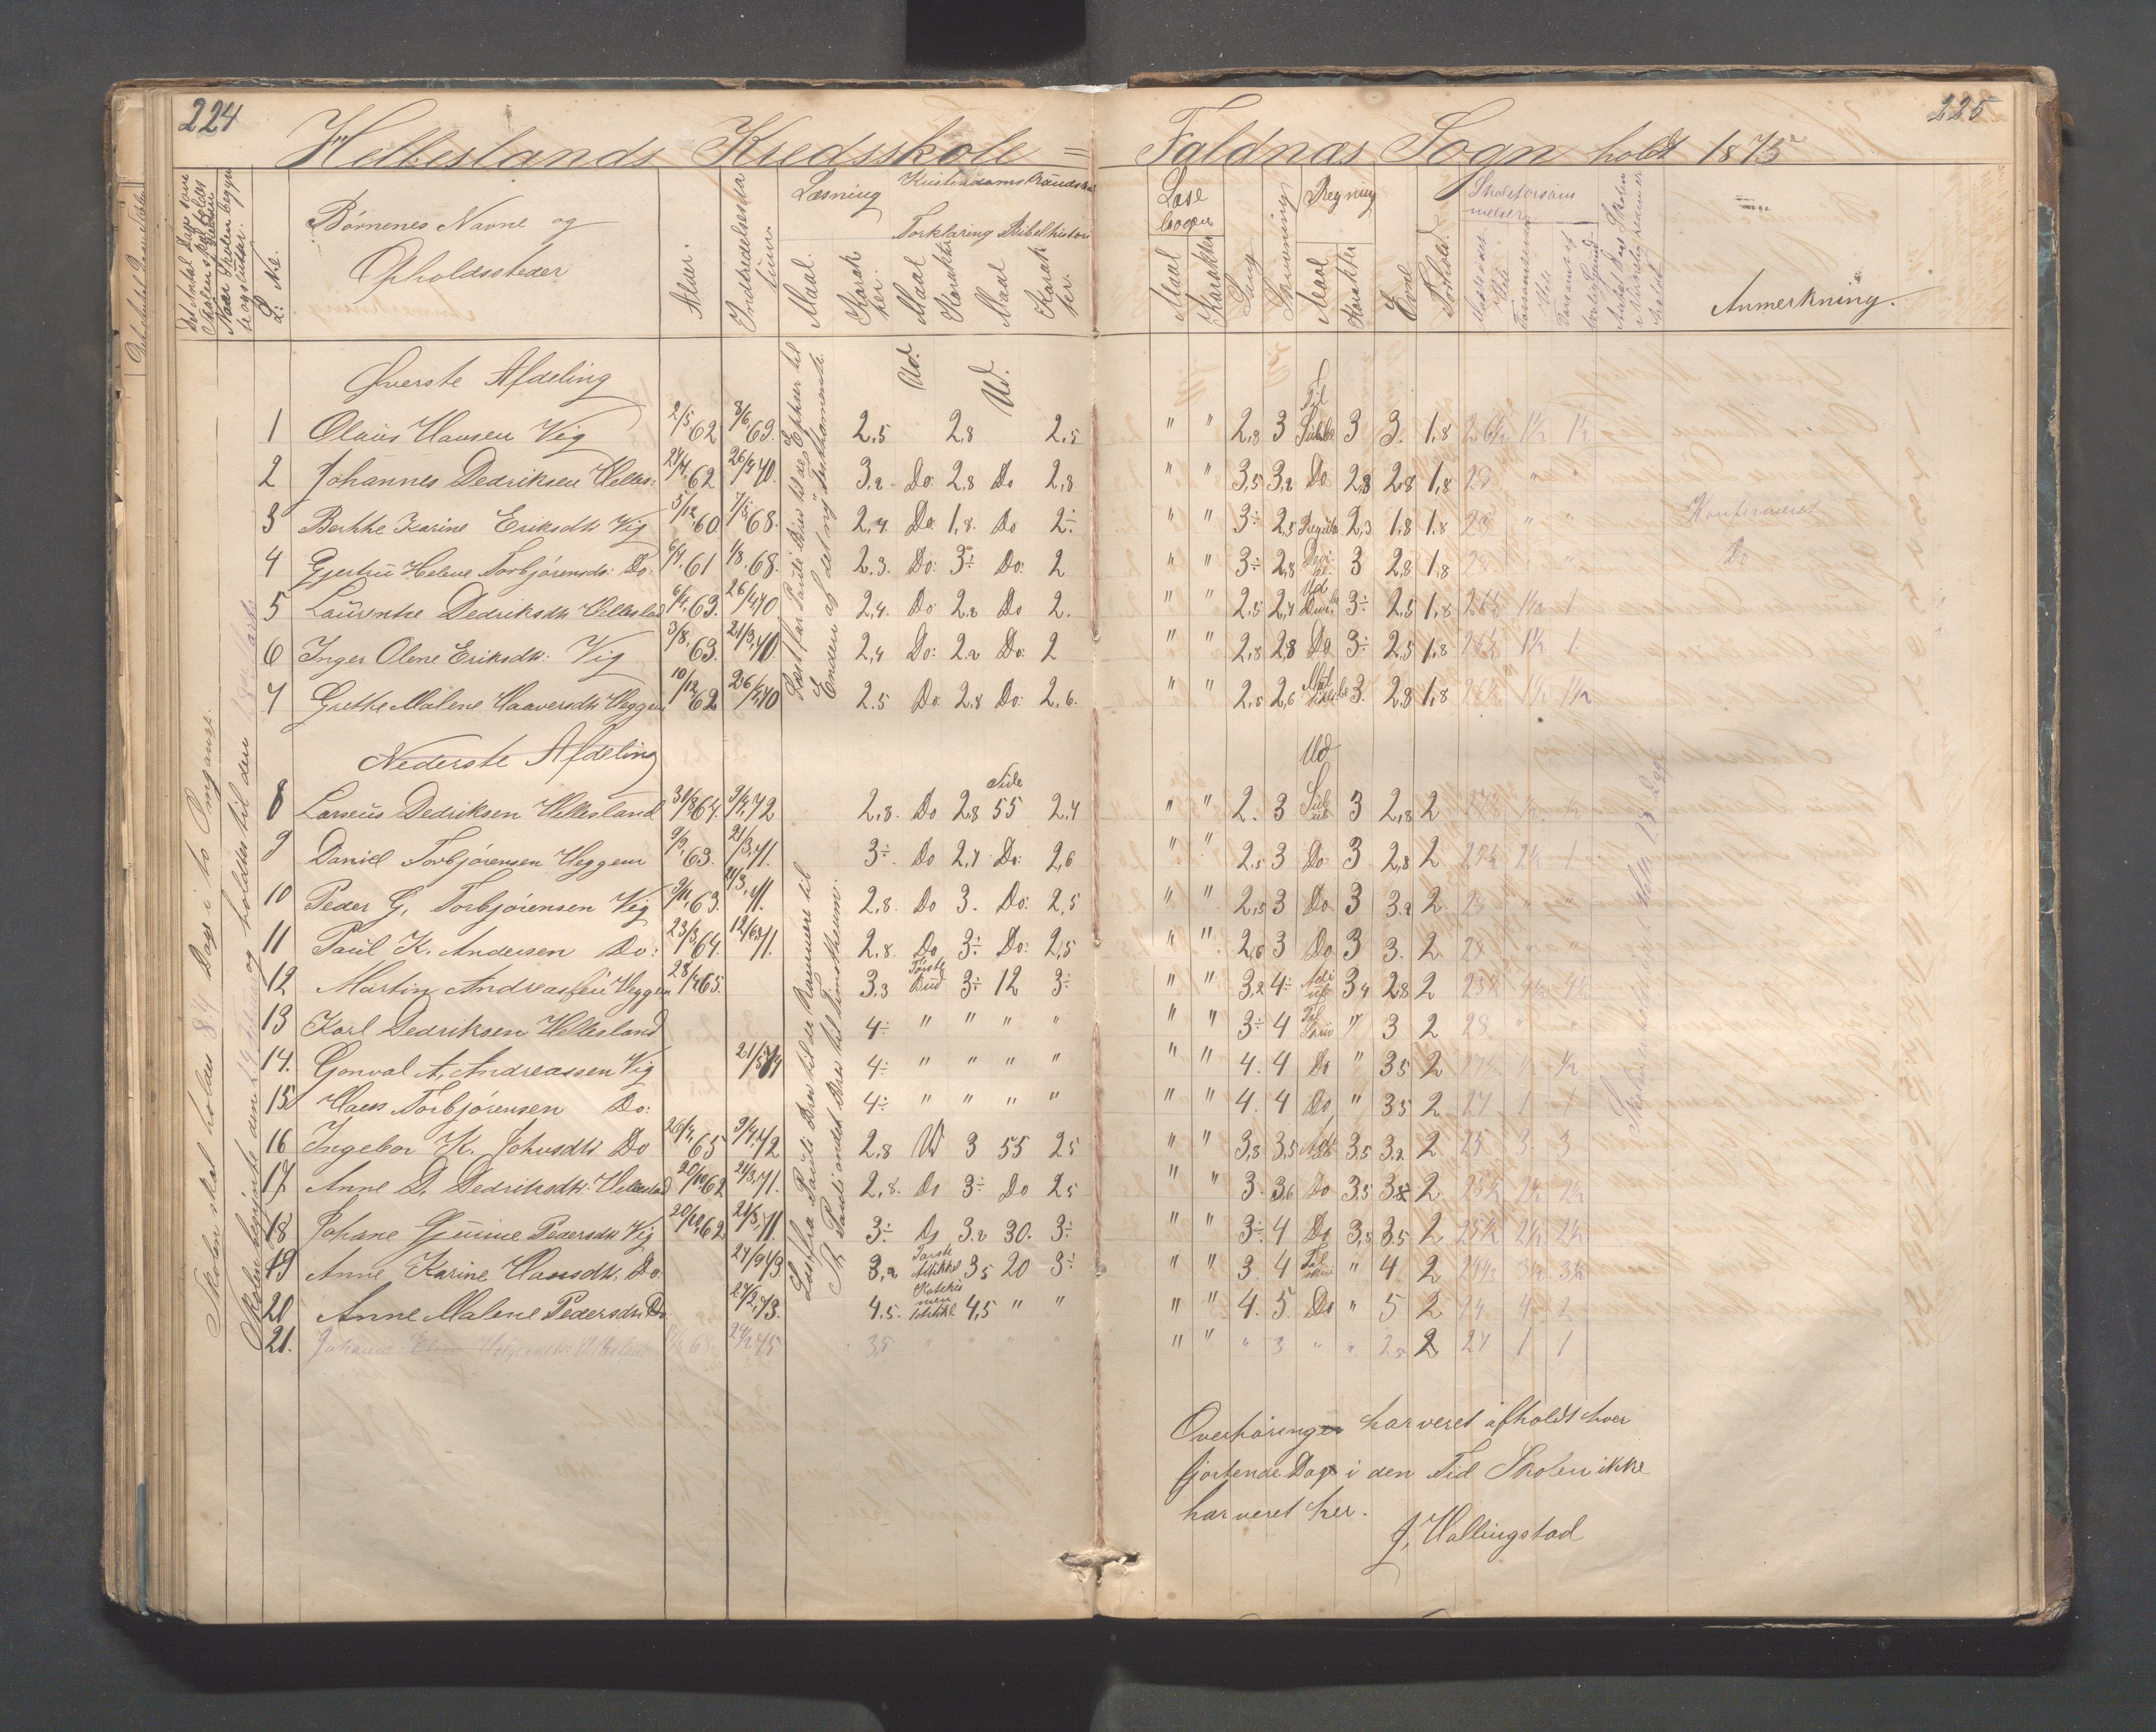 224
225
Helleslands Kredsskole = Faldnæs Sogn holdt 1875
Det Antal Dage som Skolen skal holdes
Naar Skolen begyn
tes og slutter.
L: No.
Børnenes Navne og
Opholdssteder
Alder.
Indtrædelsesda
tum.
Læsning
Maal.
Karak
ter.
Kristendoms Kundskab
Forklaring Bibelhistori
Maal
Karakter
Maal
Karak
ter.
Læse
bøger
Maal
Karakter
Sang
Skrivning
Regning
Maal
Karakter
Evne
Forhold.
Skoleforsøm
melser
Anmerkning.
Skolen skal holdes 84 Dage i to Omgange.
Øverste Afdeling
Ud. Ud.
Læst fra Pauli Brev til de Epheser til
Enden af det ny Testhamente.
1 Olaus Hansen Vig 2/5 62 8/6 69. 2,5 2,8 2,5 " " 2,8 3 Til 3 3. 1,8
2 Johannes Dedriksen Helles: 62 26/4 70. 3,2 Do: 2,8 Do 2,8 " " 3,5 3,2 Do 2,8 2,8 1,8 28 " "
3 Berthe Karine Eriksdtr Vig 5/12 60 7/5 68. 2,4 Do 1,8. Do 2÷ " " 3÷ 2,5 Regula 2,3 1,8 1,8 28 " " Konfirmeret
4 Gjertru Helene Torbjørensdr: Do: 61 1/8 68. 2.3. Do: 3÷ Do: 2 " " 3÷ 2,8 3 2,8 1,8 28 " " Do
5 Laurentse Dedriksdtr Hellesland 63. 26/4 70 2,4. Do 2,2 Do 2. " " 2,5 2,4 3÷ 2,5 1,8 26½ 1½ 1
6 Inger Olene Eriksdtr: Vig 3/8 63. 21/3 70. 2,4 Do: 2,2 Do: 2 " " 2,8 2,8 Do 3÷ 2,5 1,8 26½ 1½ 1
7 Grethe Malene Haaversdtr Heggem 10/12 62 26/4 70 2.5 Do. 2,8 Do: 2,6. " " 2,5 2,6 3. 2,8 1,8
Nederste Afdeling
Side
Ud
8 Larseus Dedriksen Hellesland 64. 9/4 72 2,8. Do 2,8 55 2,4 " " 2. 3 Sub 3 2,8 2
9 Daniel Torbjørensen Heggem 9/9 63. 21/3 71. 3÷ Do 2,4 Do: 2,6 " " 2,5 3 Do 3 2,8 2
10 Peder G. Torbjørensen Vig 9/11 63. 21/3 71. 2,8. Do 3. Do: 2,5 " " 2,5 3 Do 3 3.2 2. 28 " "
11 Paul K. Andersen Do: 23/3 64. 71. 2,8. Do 3÷ Do: 2,5 " " 2,6 3 Do 3 3. 2 28 " "
12 Martin Andreassen Heggem 28/4 65. 3,3 Første Bud 3÷ 12 3÷ " " 3,2 4÷ 3,4 2,8 2 23½ 4½ 4½
13 Karl Dedriksen Hellesland 4÷ " " " " " " 3÷ 4 Til " 3 2 28 " "
14. Gonval A. Andreassen Vig 21/5 74 4÷ " " " " " " 4. 4 Do " 35 2 27½ ½ ½
15 Hans Torbjørensen Do: 4÷ " " " " " " 4. 4 Do " 35 2 27 1 1
16 Ingebor K. Johnsdtr Do 26/4 65 9/4 72 2,8 Ud 3 55 25 " " 3,8 3,5 3,5 3,2 2 25 3 3
17 Anne D. Dedriksdtr: Hellesland 20/10 62 21/3 71. 2,8. Do 3÷ Do 25 " " 3. 3,6 Do 3,5 3,2 2 25½ 2½ 2½
18 Johane Gurine Pedersdtr Vig 20/10 62 21/3 71. 3÷ Do 3.2 30. 3÷ " " 3÷ 4 Do 3,5 3,5 2 25½ 2½ 2½
19 Anne Karine Hansdtr. Do: 24/9 73. 3,2 Første Artikkel 3,5 20 3÷ " " 3. 4 Til " 4. 2 24½ 3½ 3½
20 Anne Malene Pedersdtr Do 27/2 73. 4.5. Katekis men 4,5 " " " " 4. 5 Do " 5 2 24 4
21. 75 3,5 " " " " " " " 3 " " 2,5 2 27 1 1
Læst fra Pauli Brev til de Rommere til
Pauli andet Brev til Timotheum.
Overhøringen har veret afholdt hver
fjortende Dage i den Tid Skolen ikke
har veret her.
J. Hallingstad